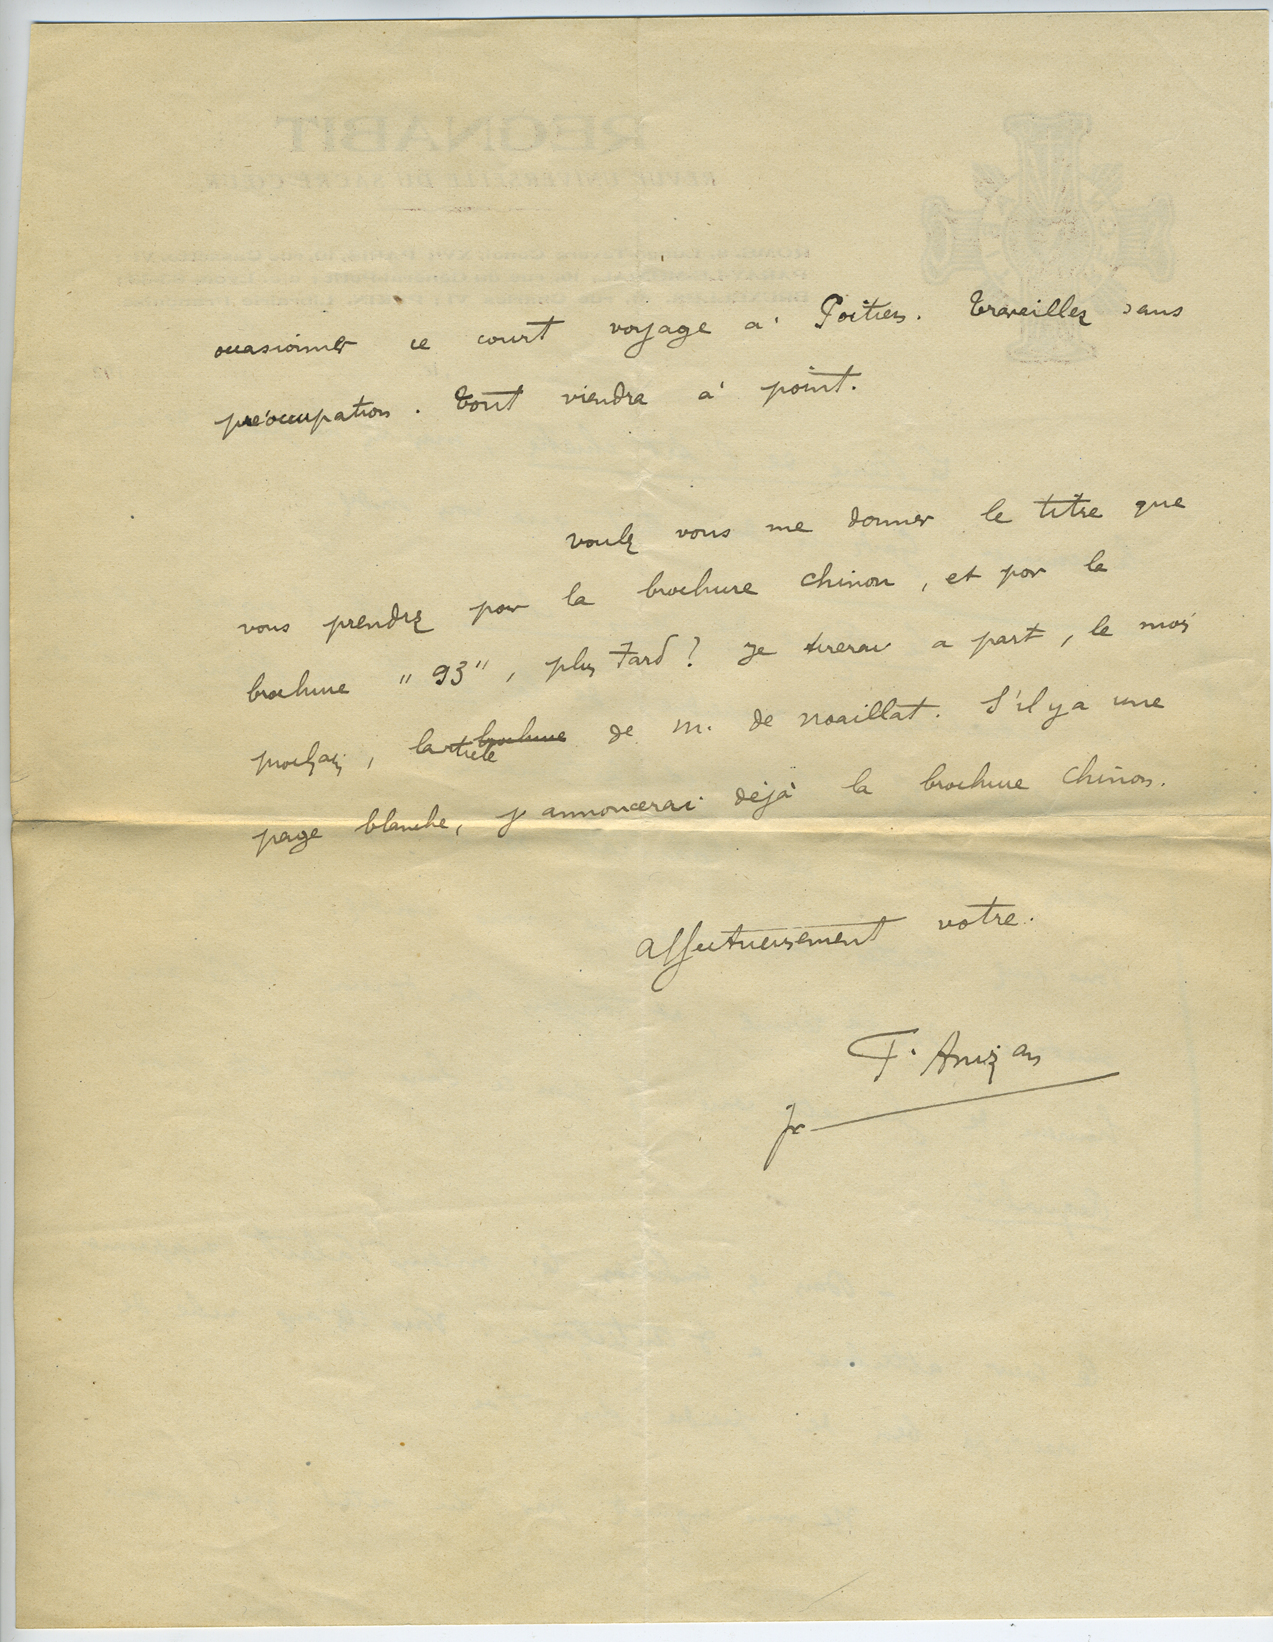 occasionner ce court voyage à Poitiers. Travaillez sans
préoccupation. Tout viendra à point.
voulez vous me donner le titre que
vous prendrez pour la brochure Chinon, et pour la
brochure "93", plus tard? Je tirerai a part, le mois
prochain, l'article brochure de M. de Noaillat. S'il y a une
page blanche, j'annoncerai déjà la brochure Chinon.
affectueusement votre.
F. Anizan
REGNABIT
REVUE UNIVERSELLE DU SACRÉ-CŒUR